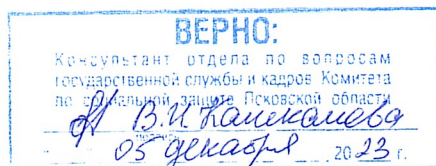 ВЕРНО:
Консультант отдела по вопросам
государственной службы и кадров Комитета
по социальной защите Псковской области
В.И.
подпись
05 декабря 2023 г.